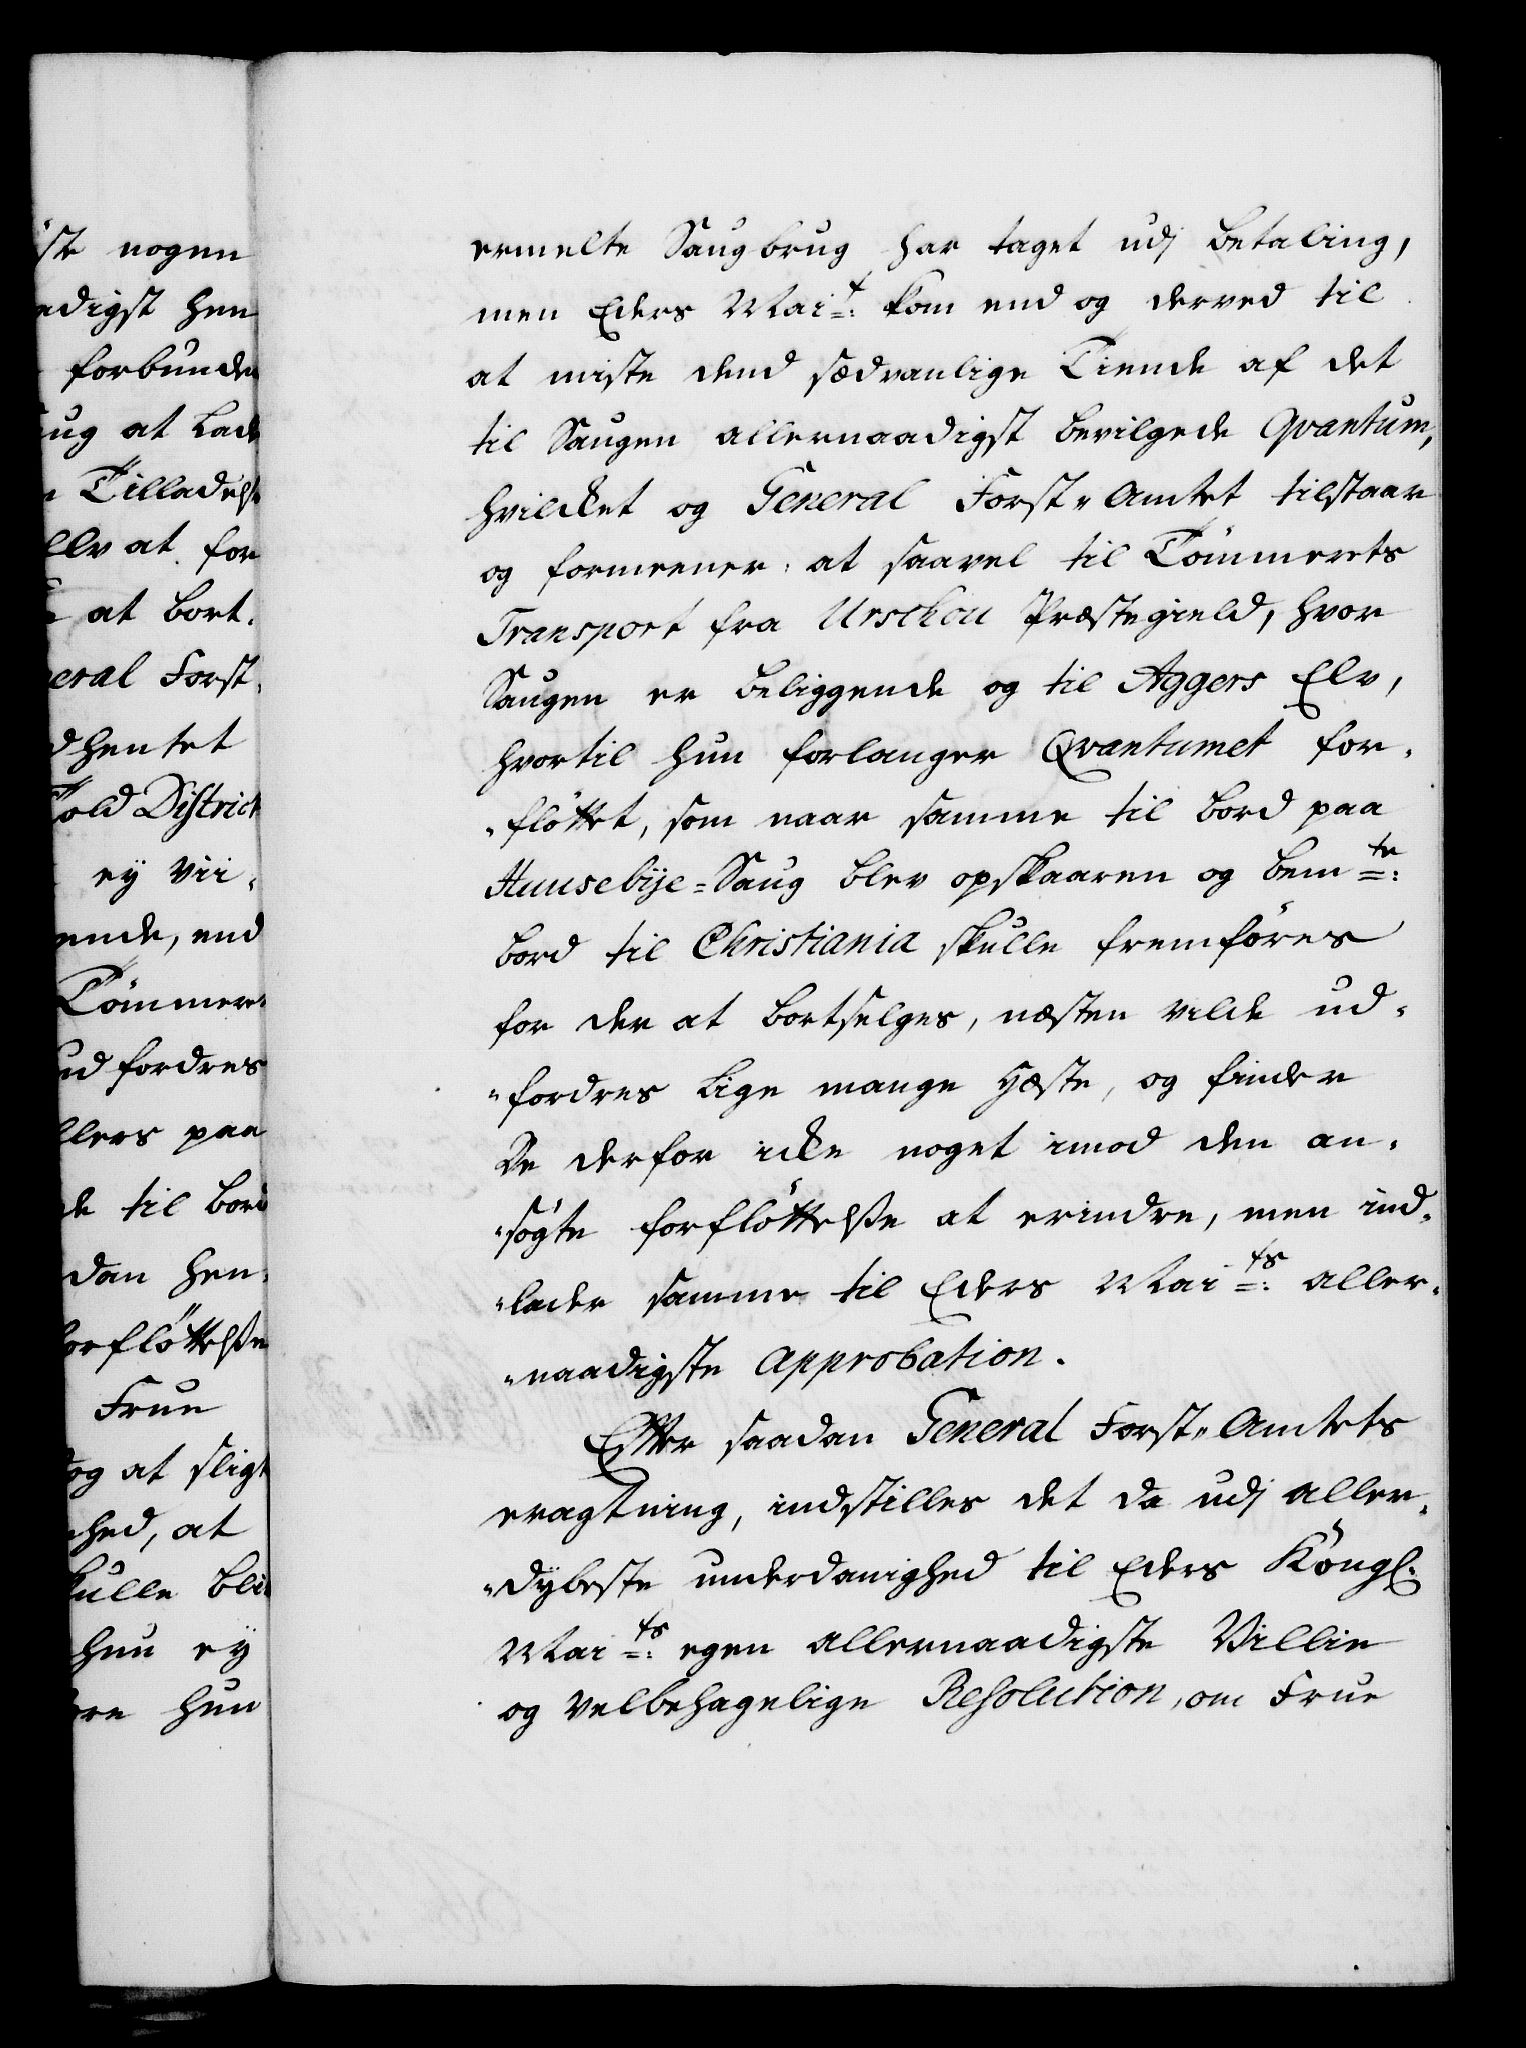 ste nogen
adigst hen
forbunden
aug at lade
Tilladelse
Elv at for
at bort-
eral Forst-
dhentet
Told District
ey vii-
ende, end
Tömmer-
ud fordres
llers paa
de til bord
dan hen-
forfløttelße
Frue
og at sligt
hed, at
kulle bli
hun ey
ere hun
ermelte Saugbrug har taget udj betaling,
men Eders Mai:t kom end og derved til
at miste dend sædvanlige Tiende af det
til Saugen allernaadigst bevilgede Qvantum,
hvilcket og General Forst-Amtet tilstaar
og formeener: at saavel til Tömmerets
Transport fra Urschou Præstegield, hvor
Saugen er beliggende og til Aggers Elv,
hvortil hun forlanger Qvantumet for-
-fløttet, som naar samme til bord paa
Huusebÿe-Saug blev opskaaren og bem:te
bord til Christiania skulle fremføres
for der at bortselges, næsten vilde ud-
-fordres lige mange Hæste, og finder
De derfor icke noget imod den an-
-søgte forfløttelße at erindre, men ind-
-lader samme til Eders Mai:ts aller-
-naadigste approbation.
Efter saadan General Forst-Amtets
eragtning, indstilles det da udj aller-
-dybeste underdanighed til Eders Kongl:
Mai:ts egen allernaadigste Villie
og velbehagelige Resolution, om Frue